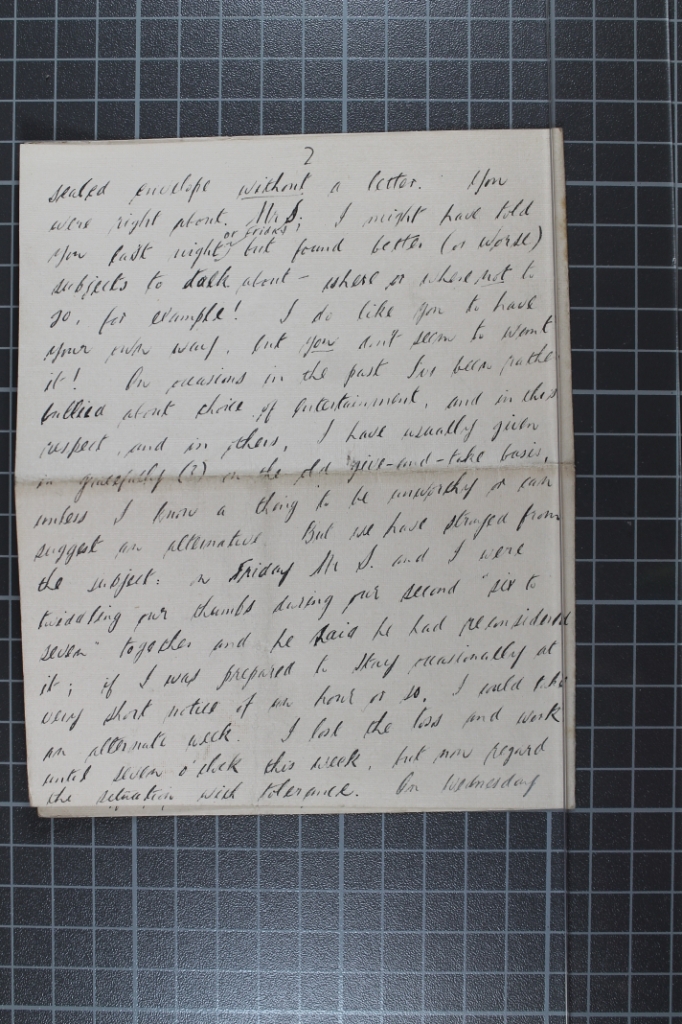 2
sealed envelope without a letter. You
were right about Mr S; I might have told
or Friday,
you last night, but found better (or worse)
subjects to talk about – where or where not to
go, for example! I do like you to have
your own way, but you don't seem to want
it! On occasions in the past I've been rather
bullied about choice of entertainment, and in this
respect, and in others, I have usually given
in gracefully (?) on the old give-and-take basis,
unless I know a thing to be unworthy or can
suggest an alternative. But we have strayed from
the subject: on Friday Mr S. and I were
twiddling our thumbs during our second "six to
seven" together and he said he had reconsidered
it; if I was prepared to stay occasionally at
very short notice of an hour or so, I could take
an alternate week. I lost the toss and work
until seven o'clock this week, but now regard
the situation with tolerance. On Wednesday